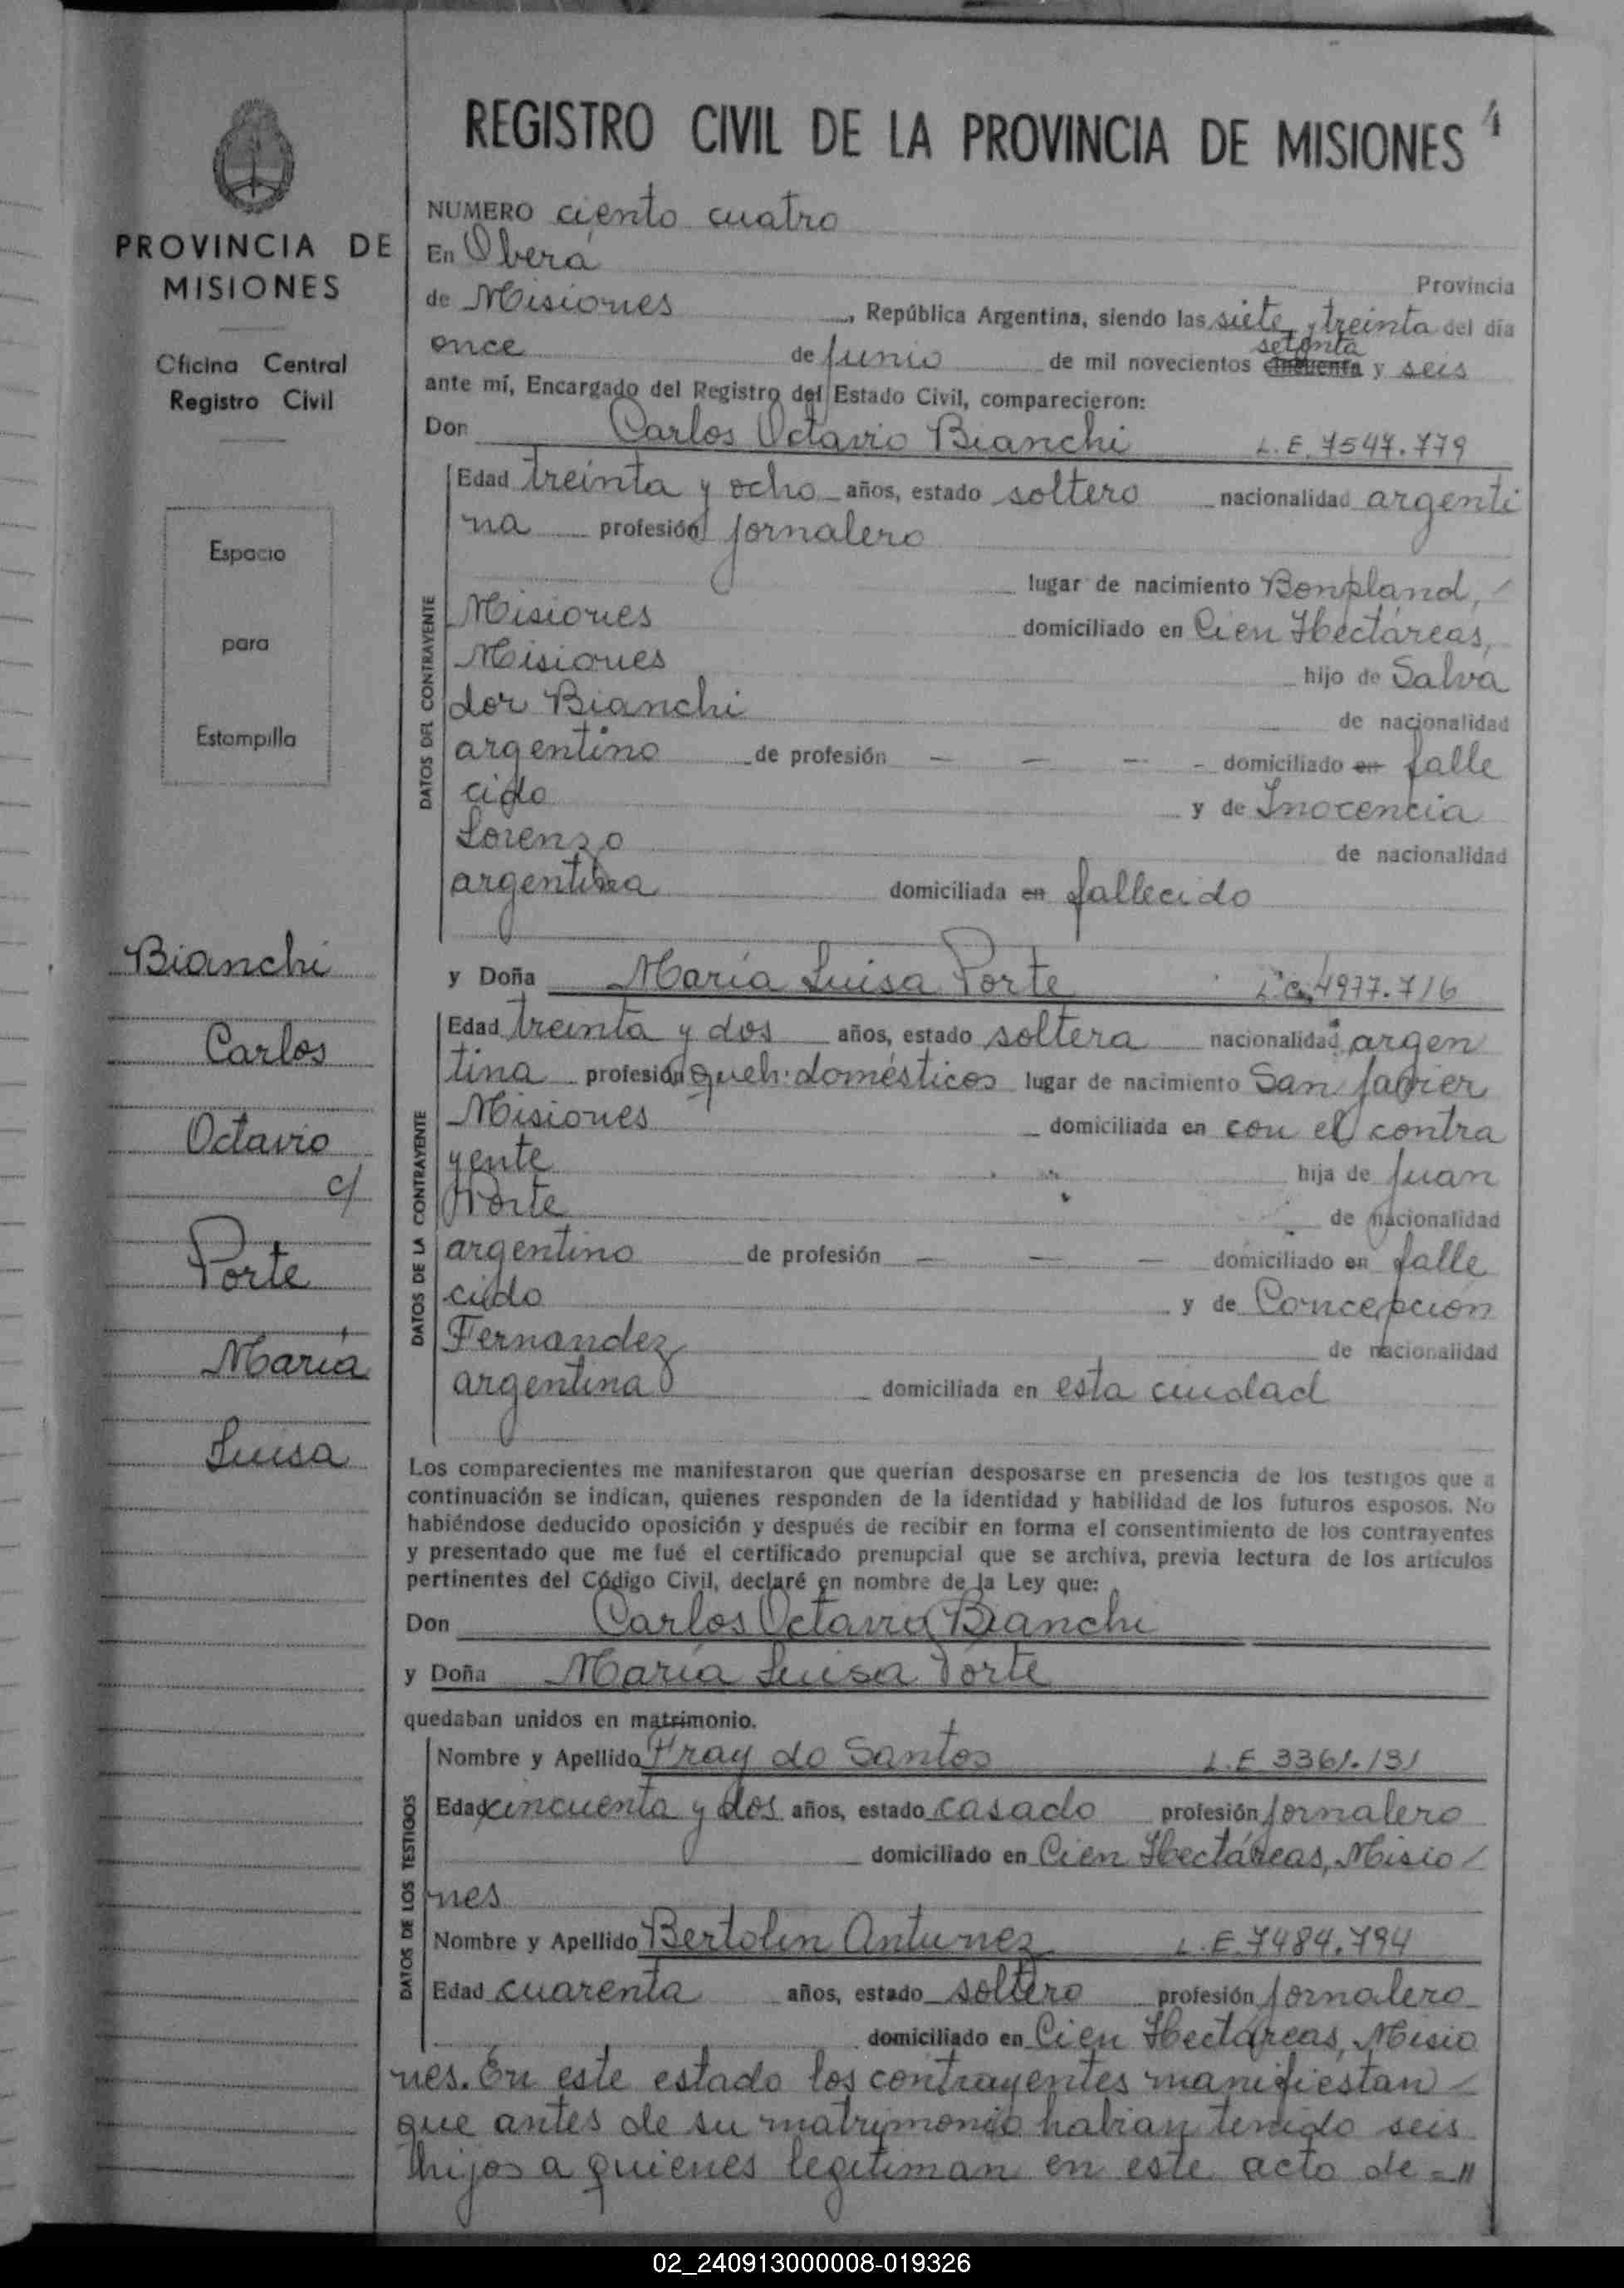 REGISTRO CIVIL DE LA PROVINCIA DE MISIONES
PROVINCIA DE
MISIONES
Oficina Central
Registro Civil
Espacio
para
Estampilla
Bianchi
Carlos
Octavio
c/
Porte
María
Luisa
NUMERO ciento cuatro
En Oberá
Provincia
de Misiones, República Argentina, siendo las siete y treinta del día
setenta
once de Junio de mil novecientos cincuenta y seis
ante mí, Encargado del Registro del Estado Civil, comparecieron:
Don Carlos Octavio Bianchi L.E. 7547.779
DATOS DEL CONTRAYENTE
Edad treinta y ocho años, estado soltero nacionalidad argenti
na profesión jornalero
lugar de nacimiento Bonpland,
Misiones domiciliado en Cien Hectáreas,
Misiones hijo de Salva
dor Bianchi de nacionalidad
argentino de profesión - - - - domiciliado en falle
cido y de Inocencia
Lorenzo de nacionalidad
argentina domiciliada en fallecido
y Doña María Luisa Porte L.C. 4977.716
DATOS DE LA CONTRAYENTE
Edad treinta y dos años, estado soltera nacionalidad argen
tina profesión queh. domésticos lugar de nacimiento San Javier
Misiones domiciliada en con el contra
yente hija de Juan
Porte de nacionalidad
argentino de profesión - - - domiciliado en falle
cido y de Concepción
Fernandez de nacionalidad
argentina domiciliada en esta ciudad
Los comparecientes me manifestaron que querían desposarse en presencia de los testigos que a
continuación se indican, quienes responden de la identidad y habilidad de los futuros esposos. No
habiéndose deducido oposición y después de recibir en forma el consentimiento de los contrayentes
y presentado que me fué el certificado prenupcial que se archiva, previa lectura de los artículos
pertinentes del Código Civil, declaré en nombre de la Ley que:
Don Carlos Octavio Bianchi
y Doña María Luisa Porte
quedaban unidos en matrimonio.
DATOS DE LOS TESTIGOS
Nombre y Apellido Fray do Santos L.E 3361.131
Edad cincuenta y dos años, estado casado profesión jornalero
domiciliado en Cien Hectáreas, Misio
nes
Nombre y Apellido Bertolin Antunez L.E. 7484.794
Edad cuarenta años, estado soltero profesión jornalero
domiciliado en Cien Hectáreas, Misio
nes. En este estado los contrayentes manifiestan
que antes de su matrimonio habian tenido seis
hijos a quienes legitiman en este acto de = "
02_240913000008-019326